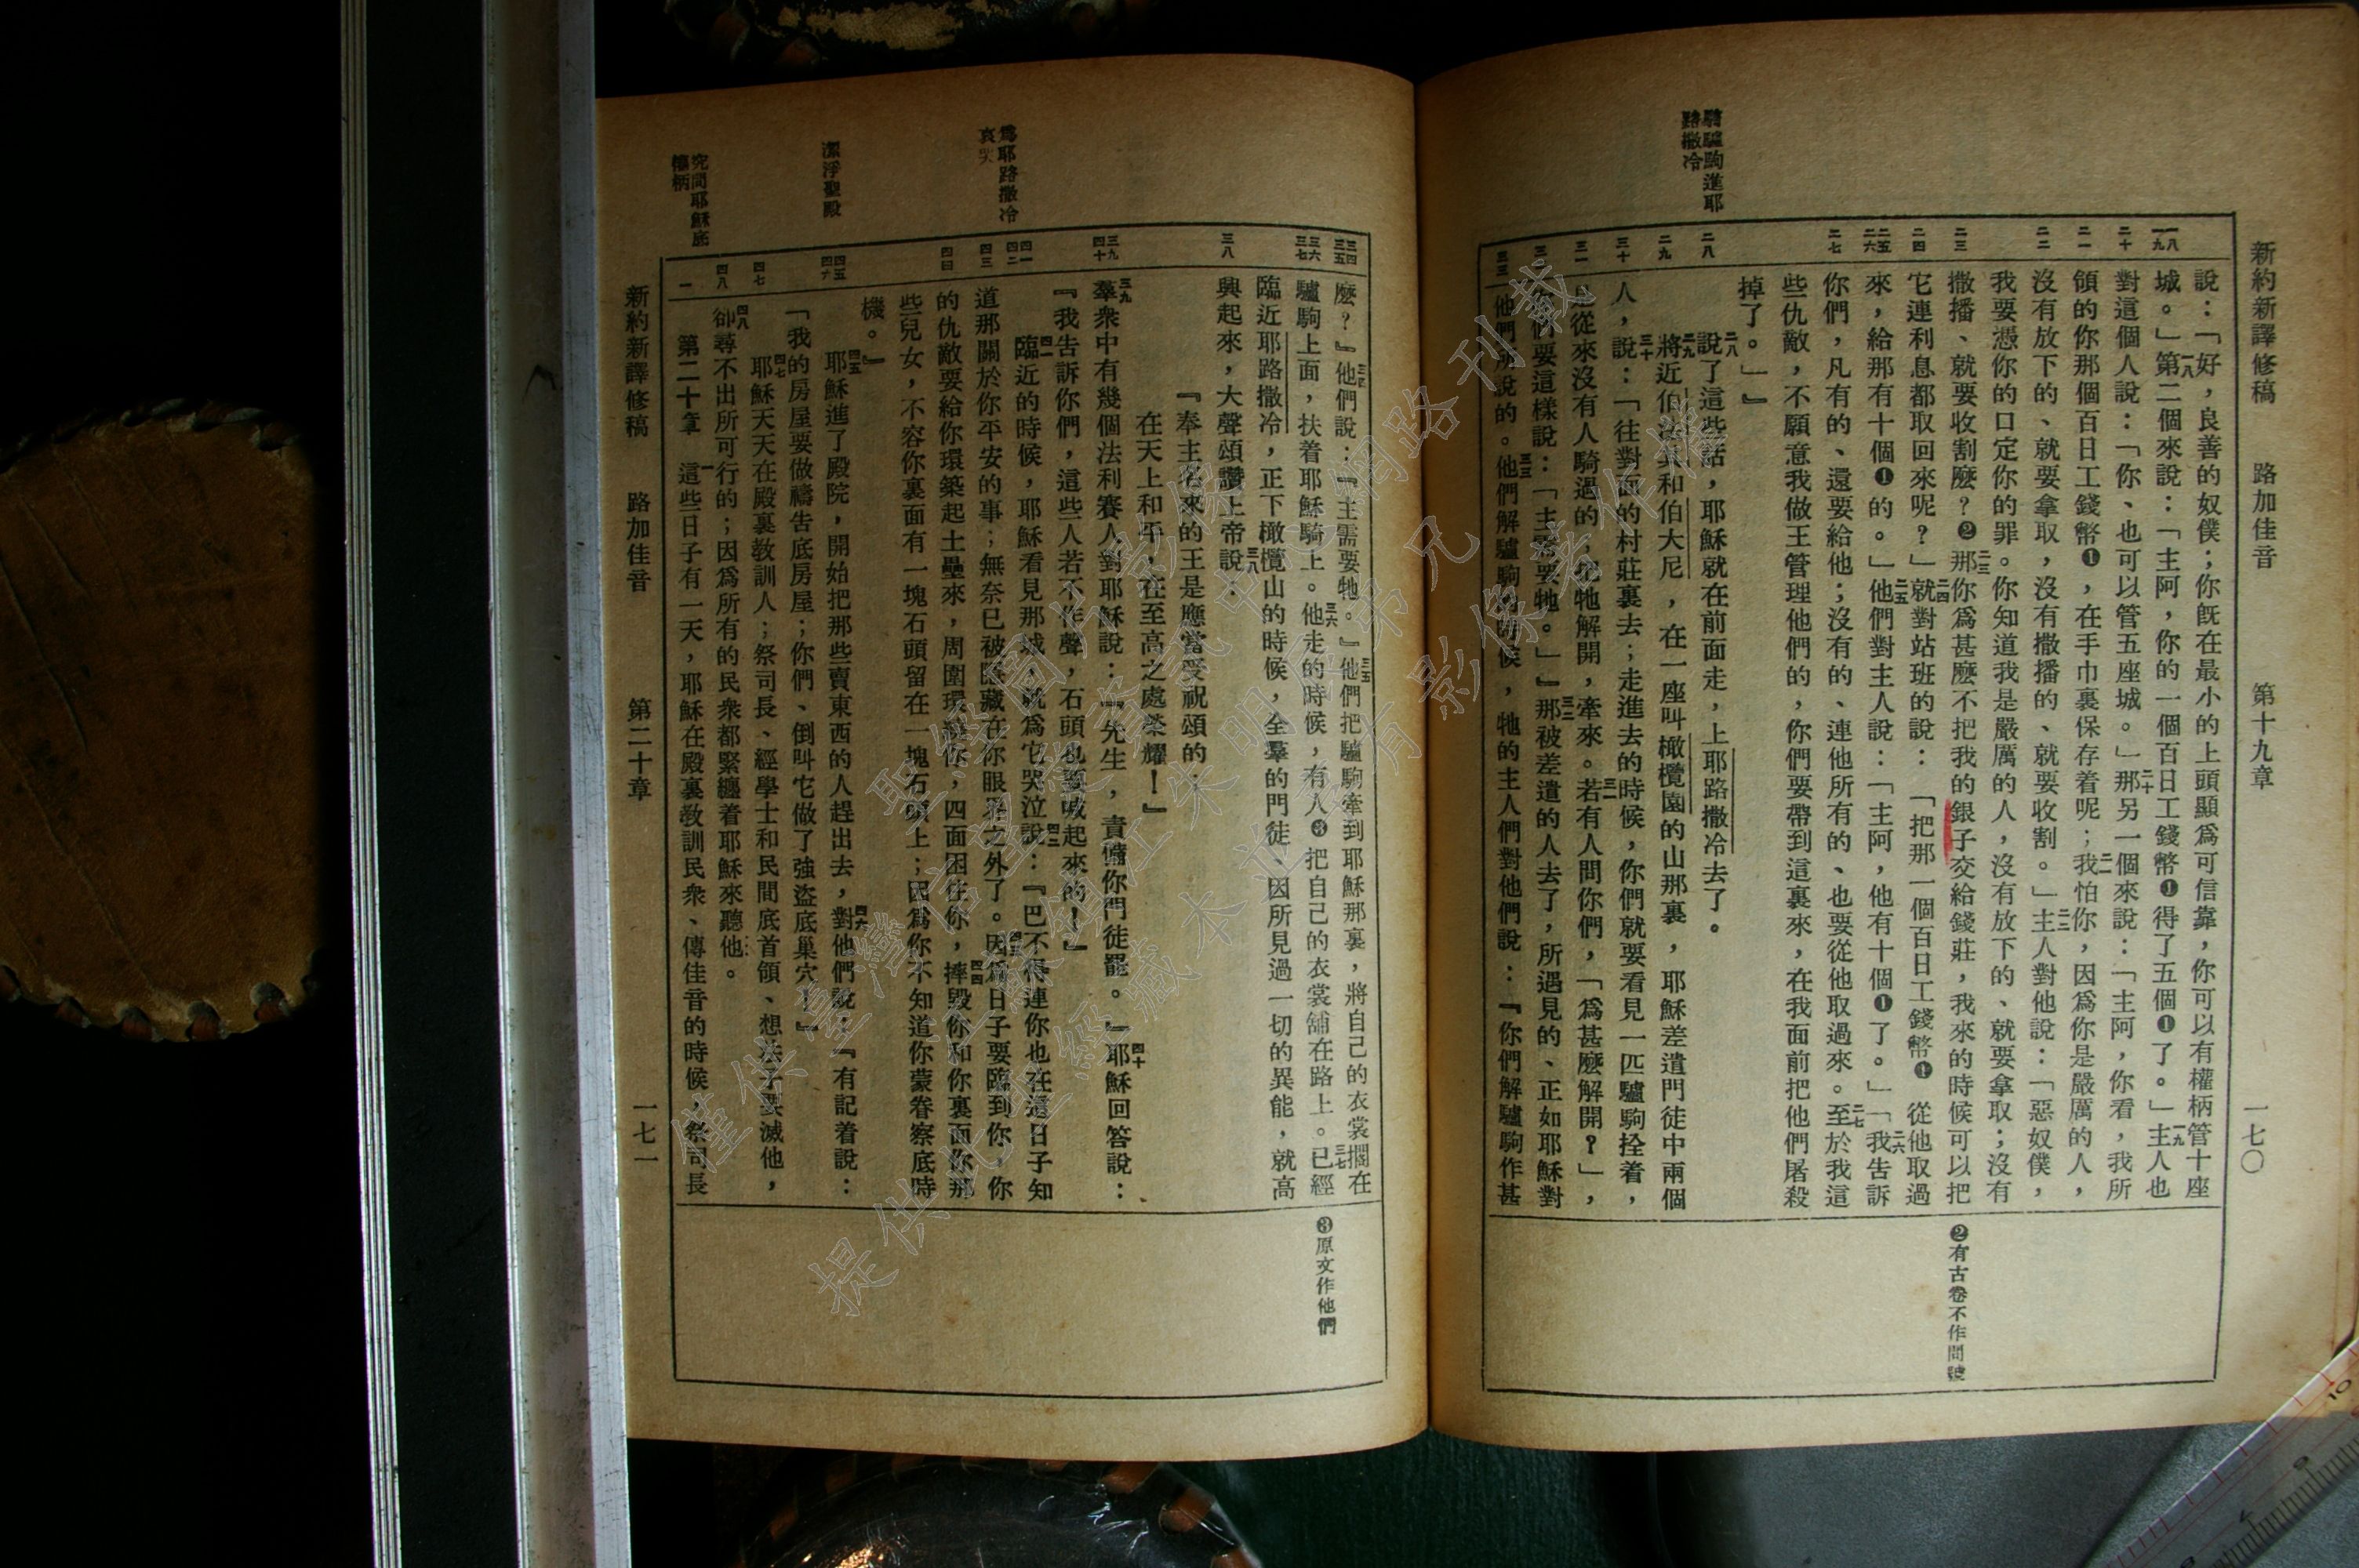 新約新譯修稿　路加佳音　第十九章　一七〇
騎驢駒進耶
路撒冷
說：「好，良善的奴僕；你旣在最小的上頭顯爲可信靠，你可以有權柄管十座
城。」一八第二個來說：「主阿，你的一個百日工錢幣❶得了五個❶了。」一九主人也
對這個人說：「你、也可以管五座城。」二十那另一個來說：「主阿，你看，我所
領的你那個百日工錢幣❶，在手巾裏保存着呢；二一我怕你，因爲你是嚴厲的人，
沒有放下的、就要拿取，沒有撒播的、就要收割。」二二主人對他說：「惡奴僕，
我要憑你的口定你的罪。你知道我是嚴厲的人，沒有放下的、就要拿取；沒有
撒播、就要收割麼？❷二三那你爲甚麼不把我的銀子交給錢莊，我來的時候可以把
它連利息都取回來呢？」二四就對站班的說：「把那一個百日工錢幣❶從他取過
來，給那有十個❶的。」二五他們對主人說：「主阿，他有十個❶了。」二六「我吿訴
你們，凡有的、還要給他；沒有的、連他所有的、也要從他取過來。二七至於我這
些仇敵，不願意我做王管理他們的，你們要帶到這裏來，在我面前把他們屠殺
掉了。」』
二八說了這些話，耶穌就在前面走，上耶路撒冷去了。
二九將近伯法其和伯大尼，在一座叫橄欖園的山那裏，耶穌差遣門徒中兩個
人，三十說：「往對面的村莊裏去；走進去的時候，你們就要看見一匹驢駒拴着，
是從來沒有人騎過的；把牠解開，牽來。三一若有人問你們，「爲甚麼解開？」，
你們要這樣說：「主需要牠。」』三二那被差遣的人去了，所遇見的、正如耶穌對
他們所說的。三三他們解驢駒的時候，牠的主人們對他們說：『你們解驢駒作甚
一八
一九
二十
二一
二二
二三
二四
二五
二六
二七
二八
二九
三十
三一
三二
三三
❷有古卷不作問號
麼？』三四他們說：『主需要牠。』三五他們把驢駒牽到耶穌那裏，將自己的衣裳擱在
驢駒上面，扶着耶穌騎上。三六他走的時候，有人❸把自己的衣裳舖在路上。三七已經
臨近耶路撒冷，正下橄欖山的時候，全羣的門徒、因所見過一切的異能，就高
興起來，大聲頌讚上帝說：三八
『奉主名來的王是應當受祝頌的；
在天上和平，在至高之處榮耀！』
三九羣衆中有幾個法利賽人對耶穌說：『先生，責備你門徒罷。』四十耶穌回答說：
『我吿訴你們，這些人若不作聲，石頭也要喊起來的！』
四一臨近的時候，耶穌看見那城，就爲它哭泣說：四二『巴不得連你也在這日子知
道那關於你平安的事；無奈已被隱藏在你眼界之外了。四三因爲日子要臨到你，你
的仇敵要給你環築起土壘來，周圍環繞你，四面困住你，四四摔毀你和你裏面你那
些兒女，不容你裏面有一塊石頭留在一塊石頭上；因爲你不知道你蒙眷察底時
機。』
四五耶穌進了殿院，開始把那些賣東西的人趕出去，四六對他們說：『有記着說：
「我的房屋要做禱吿底房屋；你們、倒叫它做了強盜底巢穴！』
四七耶穌天天在殿裏敎訓人；祭司長、經學士和民間底首領、想法子要滅他，
四八卻尋不出所可行的；因爲所有的民衆都緊纏着耶穌來聽他。
第二十章　一這些日子有一天，耶穌在殿裏敎訓民衆、傳佳音的時候，祭司長
三四
三五
三六
三七
三八
三九
四十
四一
四二
四三
四四
四五
四六
四七
四八
一
爲耶路撒冷
哀哭
潔淨聖殿
究問耶穌底
權柄
❸原文作他們
新約新譯修稿　路加佳音　第二十章　一七一